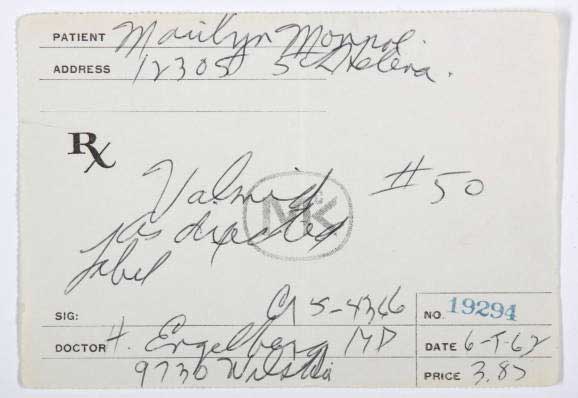 PATIENT Marilyn Monroe.
ADDRESS 12305 5th Helena.
Rx
Valmid #50
as directed
Label
MK
SIG: Cr 5-4366
NO. 19294
DOCTOR H. Engelberg MD
DATE 6-1-62
9730 Wilshi
PRICE 3.87